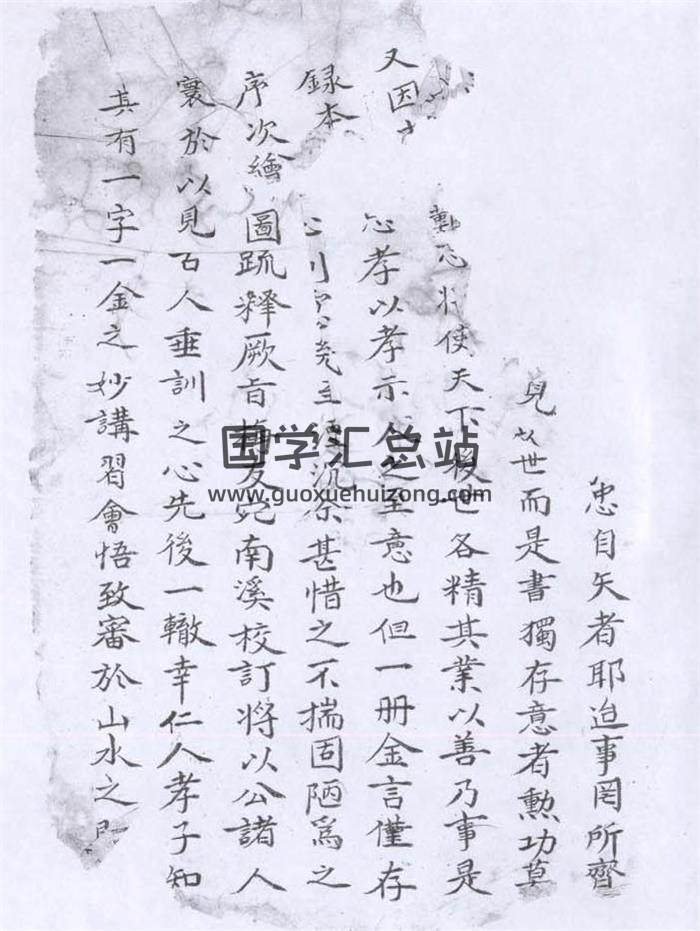 忠自矢者耶迨事罔所齎
見 世而是書獨存意者勲功莫
將使天下後世各精其業以善乃事是
又因 忠孝以孝示人之至意也但一册金言僅存
録本 甚惜之不揣固陋爲之
序次繪圖疏釋厥旨 友 南溪校訂將以公諸人
寰於以見古人垂訓之心先後一轍幸仁人孝子知
其有一字一金之妙講習會悟致審於山水之間
国学汇总站
www.guoxuehuizong.com